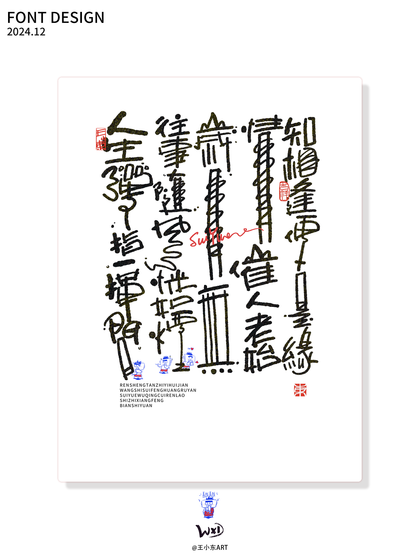 FONT DESIGN
2024.12
人生彈指一揮間
往事隨風恍如煙
歲月無
情催人老始
知相逢便是緣
RENSHENGTANZHIYIHUIJIAN
WANGSHISUIFENGHUANGRUYAN
SUIYUEWUQINGCUIRENLAO
SHIZHIXIANGFENG
BIANSHIYUAN
WXD
@王小东ART